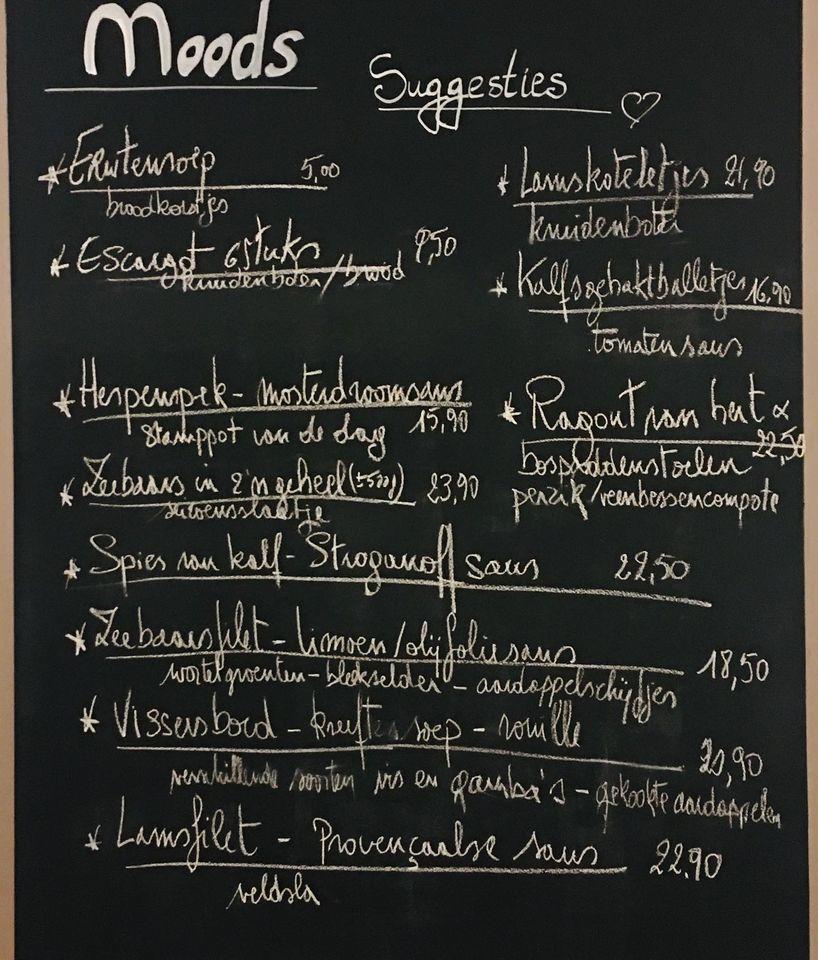 Moods
Suggesties
* Erwtensoep 5,00
broodkorstjes
* Escargot 6 stuks 9,50
kruidenboter/brood
* Lamskoteletjes 21,90
kruidenboter
* Kalfsgehaktballetjes 16,90
tomatensaus
* Hespenspek - mosterdroomsaus
15,90
stamppot van de dag
* Zeebaars in z'n geheel (±500g) 23,90
seizoensslaatje
* Ragout van hert &
22,50
bospaddenstoelen
perzik/veenbessencompote
* Spies van kalf - Stroganoff saus 22,50
* Zeebaarsfilet - limoen/olijfoliesaus
18,50
wortelgroenten - bleekselder - aardappelschijfjes
* Vissersbord - kreeftensoep - rouille
21,90
verschillende soorten vis en gamba's - gekookte aardappelen
* Lamsfilet - Provençaalse saus 22.90
veldsla